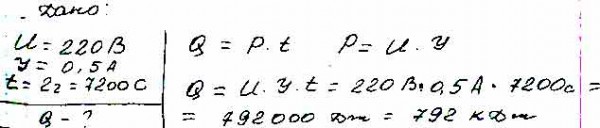 Дано:
U = 220 В
Y = 0,5 А
t = 2г = 7200 С
Q - ?
Q = P. t    P = U. Y
Q = U. Y. t = 220 В • 0,5 А • 7200с =
= 792000 Дж = 792 кДж